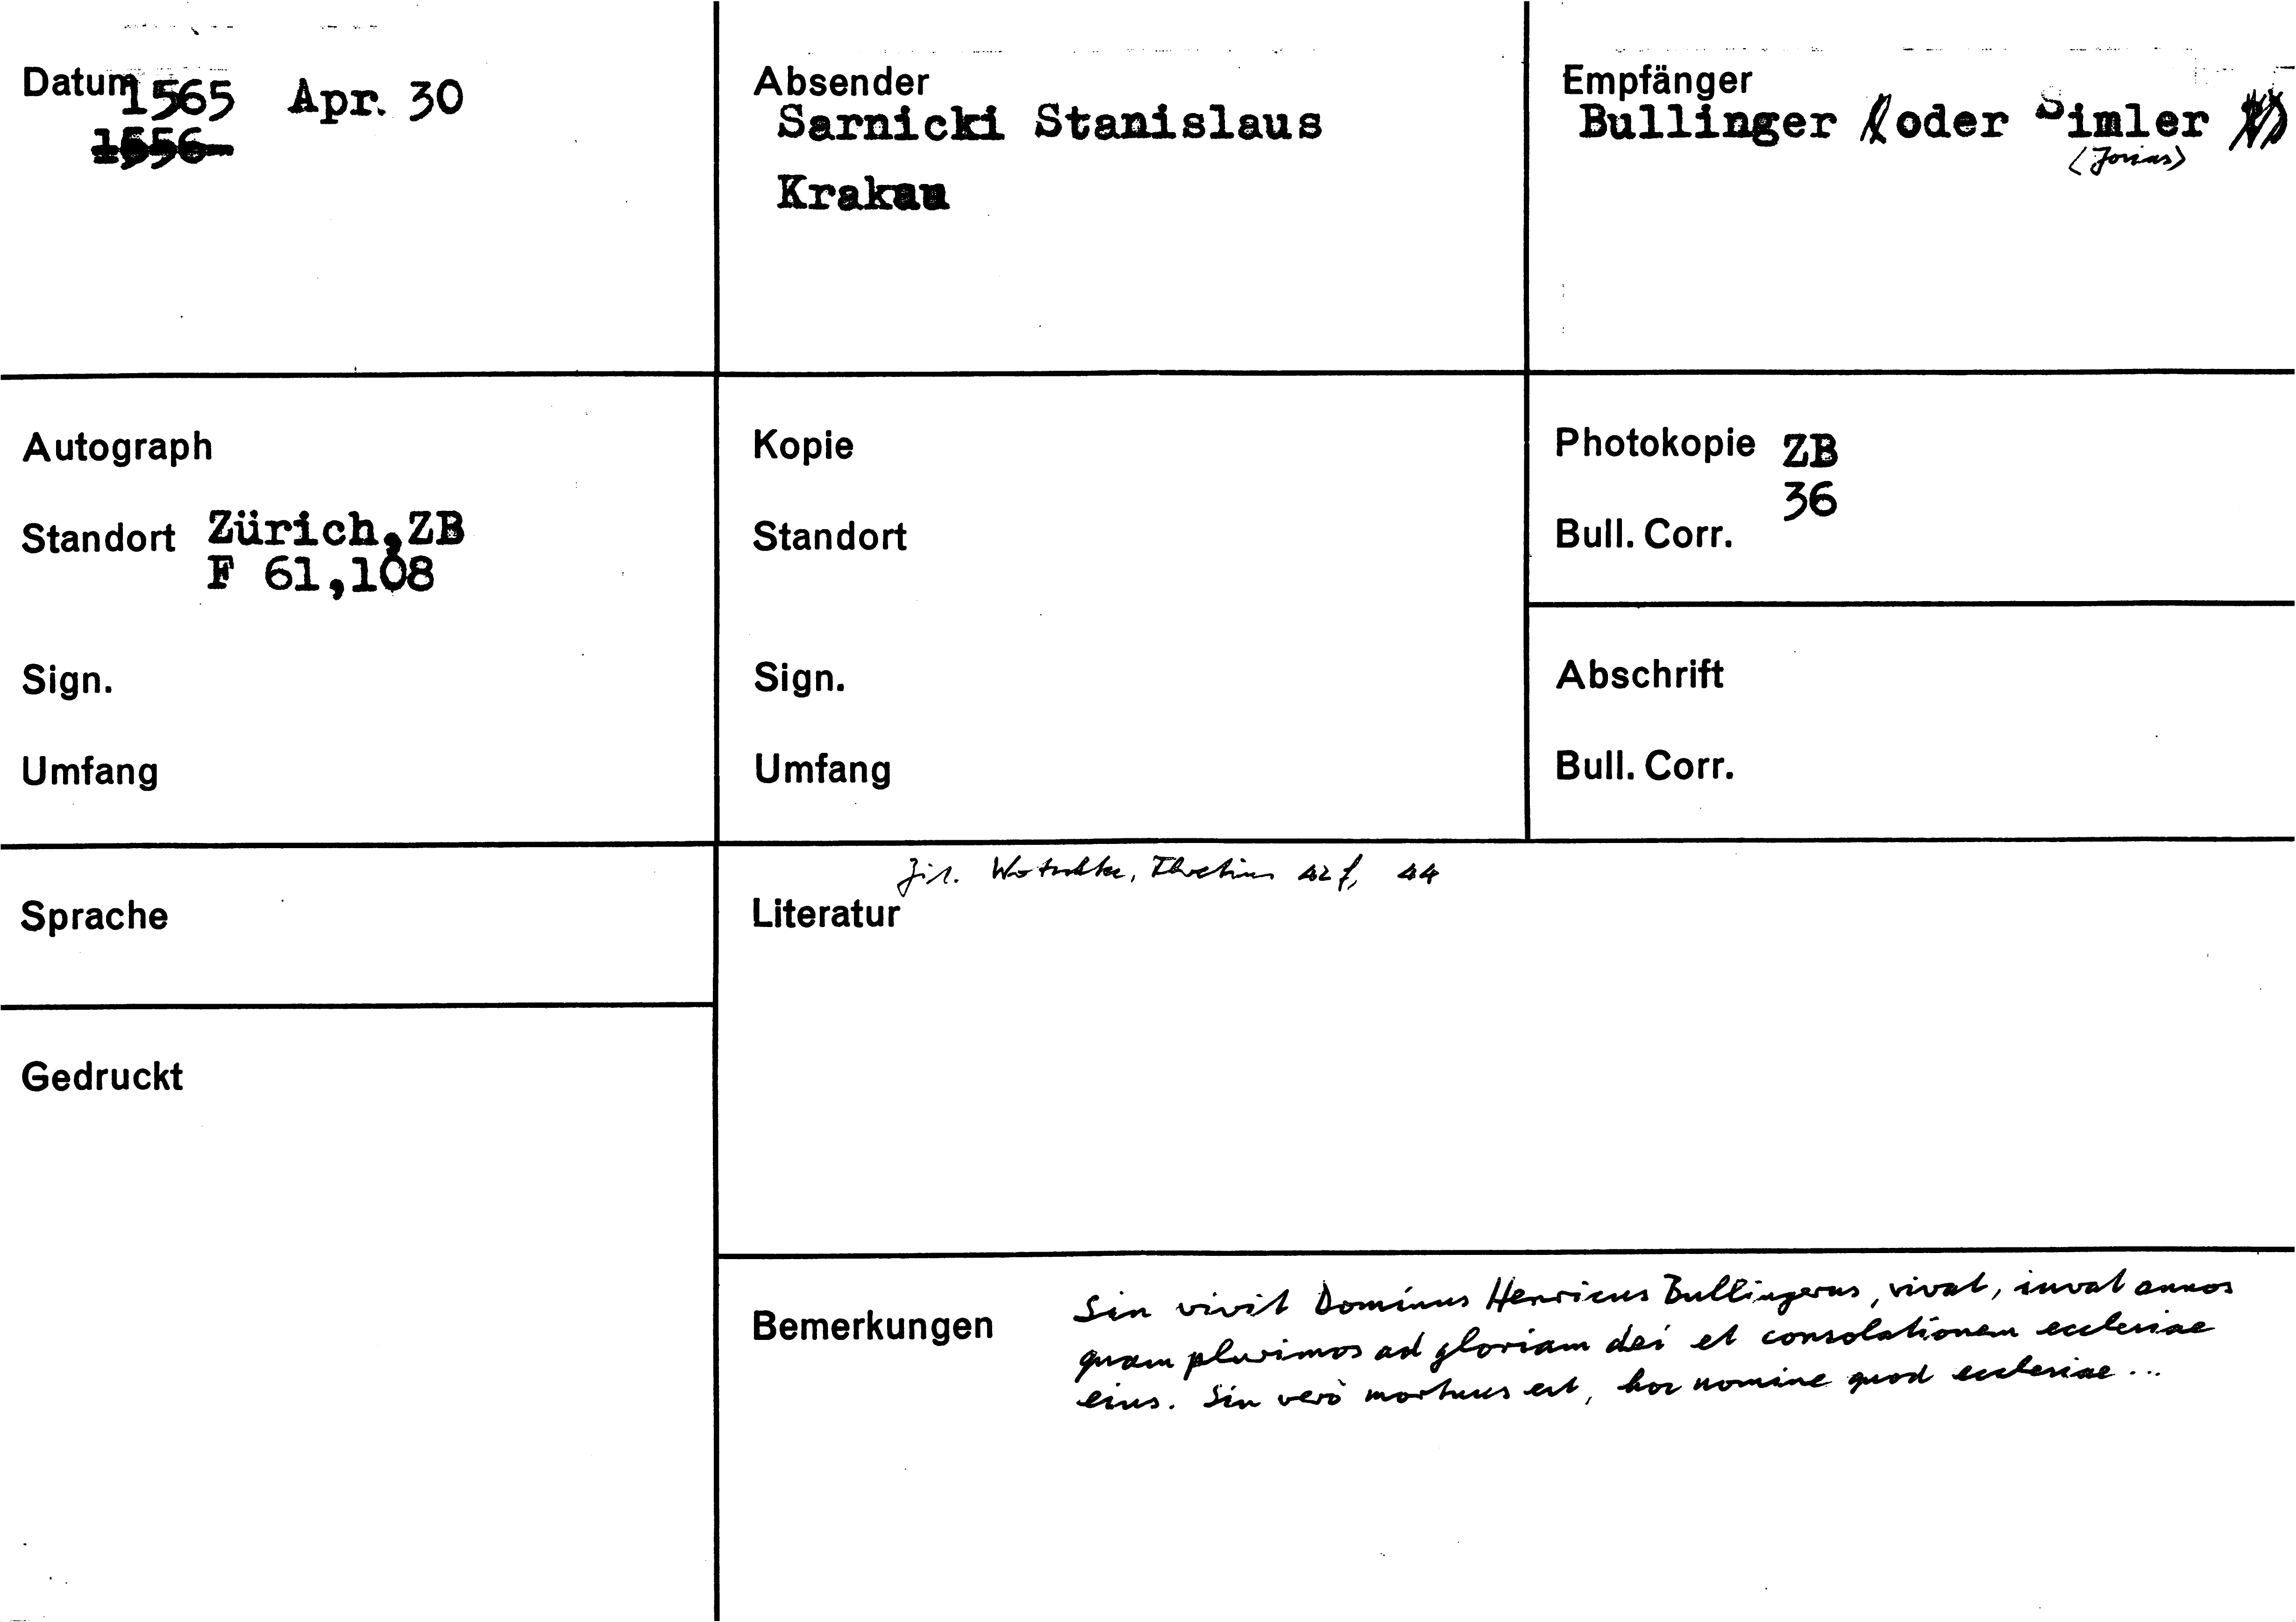 Datum 1565 Apr. 30
1556
Absender
Sarnicki Stanislaus
Krakau
Empfänger
Bullinger (oder Simler
(Josias)
Autograph
Standort Zürich, ZB
F 61,108
Sign.
Umfang
Kopie
Standort
Sign.
Umfang
Photokopie ZB
36
Bull. Corr.
Abschrift
Bull. Corr.
Sprache
Gedruckt
Zit. Wotschke, Thretius 42 f, 44
Literatur
Bemerkungen
Sin vivit Dominus Henricus Bullingerus, vivat, iuvat annos
quam plurimos ad gloriam dei et consolationem ecclesiae
eius. Sin verò mortuus est, hoc nomine quod ecclesiae ...